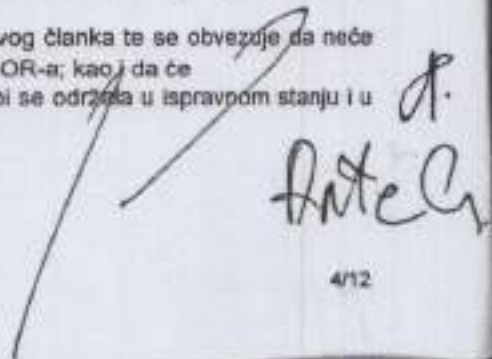 vog članka te se obvezuje da neće
OR-a; kao i da će
bi se održala u ispravnom stanju i u
Ante
4/12